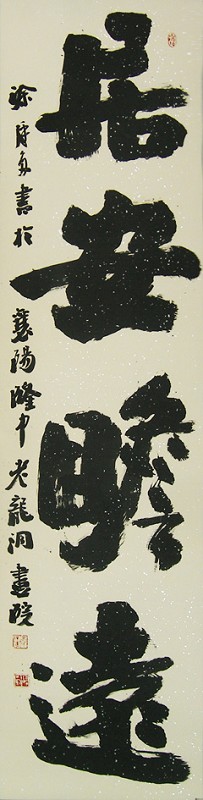 居安瞻遠
徐府勇書於襄陽隆中老龍洞畫院